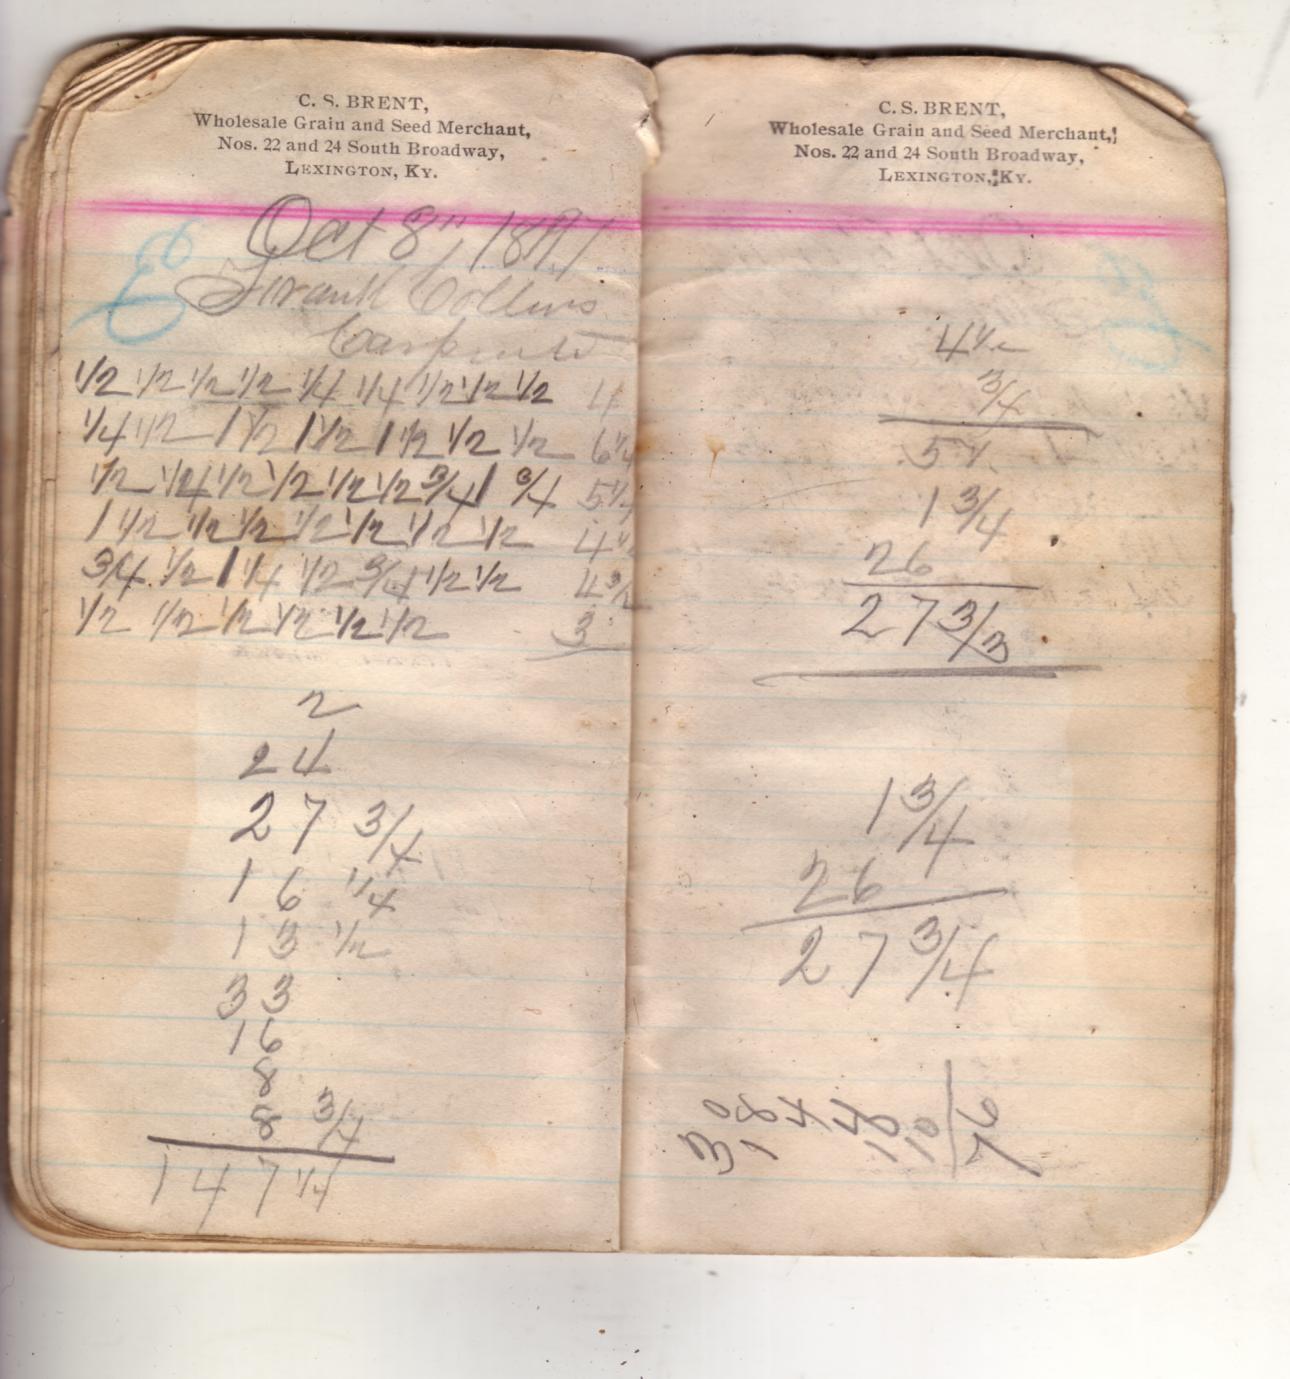 C. S. BRENT,
Wholesale Grain and Seed Merchant,
Nos. 22 and 24 South Broadway,
LEXINGTON, KY.
Oct 8", 1897
Frank Collins
1/2 1/2 1/2 1/2 1/4 1/4 1/2 1/2 1/2 4
1/4 1/2 1 1/2 1 1/2 1 1/2 1/2 1/2 6 1/4
1/2 1/4 1/2 1/2 1/2 1/2 3/4 1 3/4 5 1/4
1 1/2 1/2 1/2 1/2 1/2 1/2 1/2 4 1/2
3/4 1/2 1 1/4 1/2 3/4 1/2 1/2
1/2 1/2 1/2 1/2 1/2 1/2 3
2
24
27 3/4
16 1/4
13 1/2
33
16
8
8 3/4
147 1/4
C. S. BRENT,
Wholesale Grain and Seed Merchant,
Nos. 22 and 24 South Broadway,
LEXINGTON, KY.
4 1/2
3/4
5 1/4
1 3/4
26
27 3/3
1 3/4
26
27 3/4